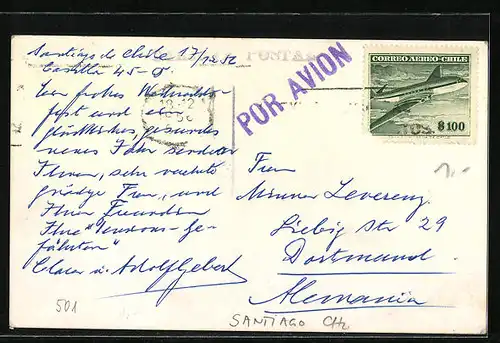 Santiago de Chile 17/12 56
Casilla 45-D.
Ein frohes Weihnachts-
fest und ein
glückliches, gesundes
neues Jahr senden
Ihnen, sehr verehrte
gnädige Frau, und
Ihren Freunden
Ihre "Pensions-Ge-
fährten"
Clara u. Adolf Gebert
501
POSTAL
POR AVION
18·12
CORREO AEREO-CHILE
$100
1.-
Frau
Minner Leverenz
Liebig Str 29
Dortmund
Alemania
SANTIAGO CHL